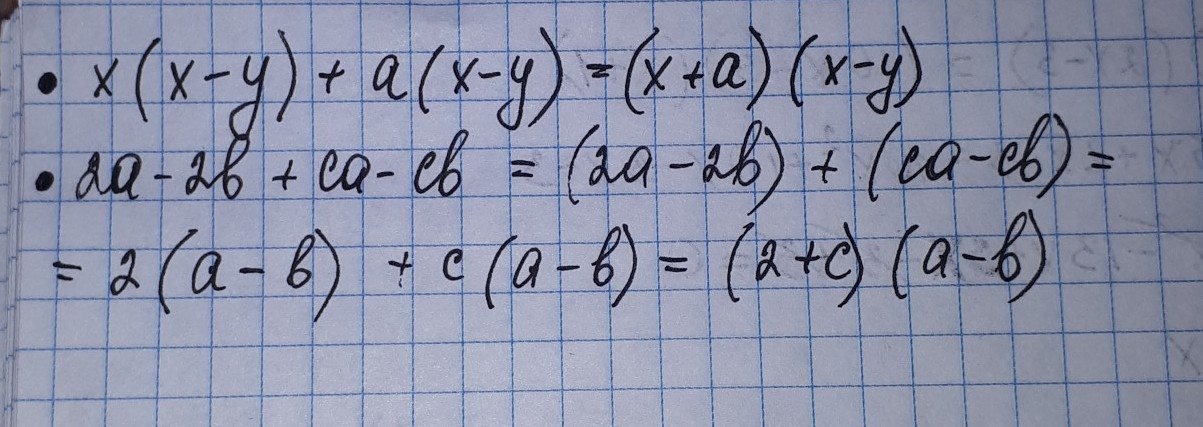 • x(x-y)+a(x-y)=(x+a)(x-y)
• 2a-2b+ca-cb=(2a-2b)+(ca-cb)=
=2(a-b)+c(a-b)=(2+c)(a-b)